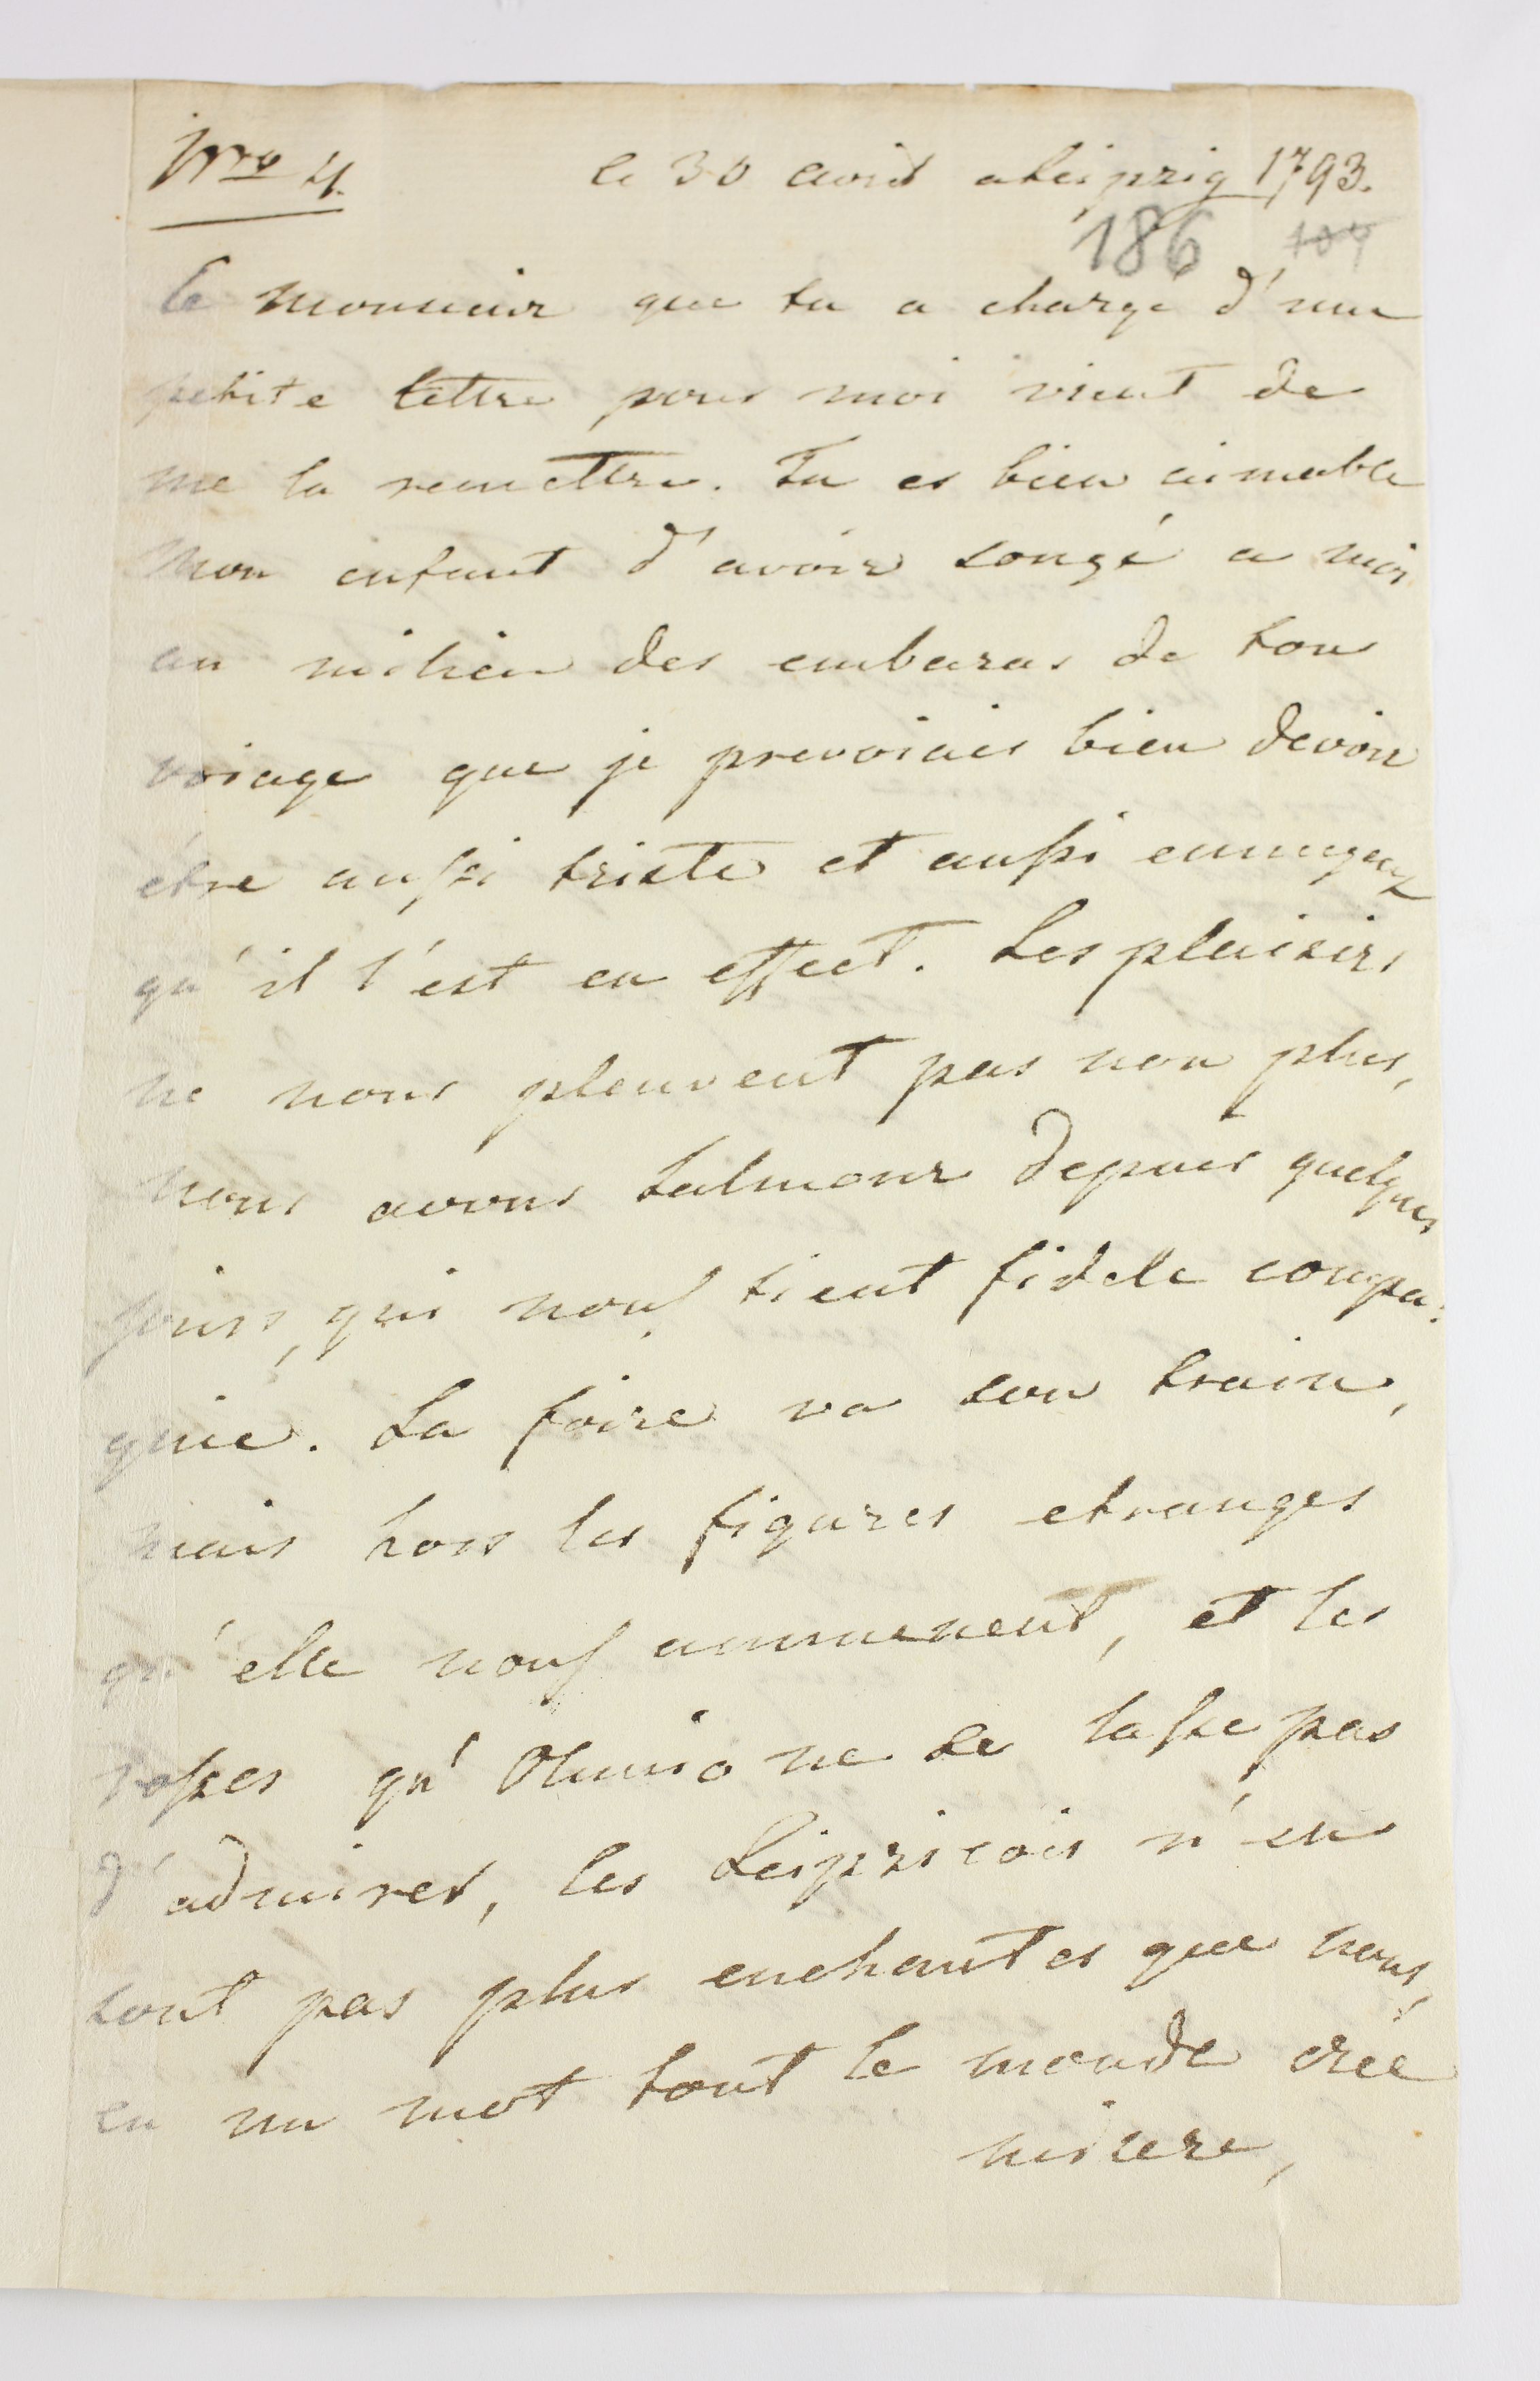 Nro 4. le 30 août a Leipzig 1793.
186 104
Le monsieur que tu a charge d'une
petite lettre pour moi vient de
me la remettre. Tu es bien aimable
mon enfant d'avoir songé a moi
au milieu des embaras de ton
voiage que je prevoiais bien devoir
être aussi triste et aussi ennuyeux
qu'il l'est en effect. Les plaisirs
ne nous pleuvent pas non plus,
nous avons Salmour depuis quelques
jours, qui nous tient fidelle compa:
gnie. La foire va son train,
mais hors les figures etranges
qu'elle nous ammenent, et les
rosses qu' ne se lasse pas
d'admirer, les Leipzicois n'en
sont pas plus enchantes que nous,
en un mot tout le monde crie
misere,